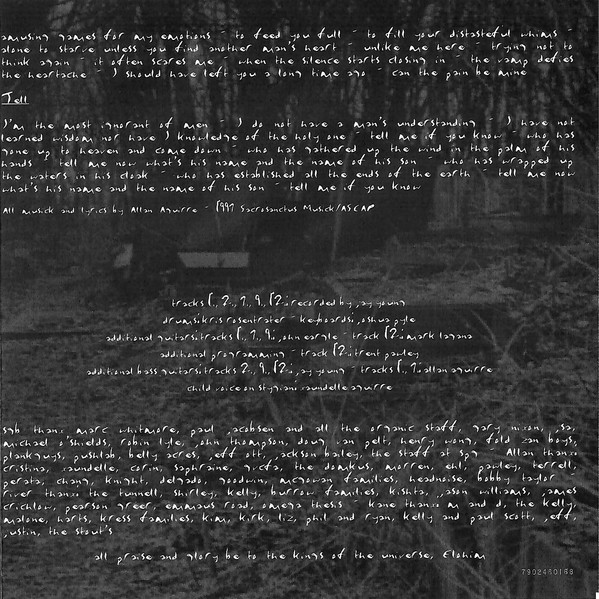 amusing games for my emotions - to feed you full - to fill your distasteful whims -
alone to starve unless you find another man's heart - unlike me here - trying not to
think again - it often scares me - when the silence starts closing in - the vamp defies
the heartache - I should have left you a long time ago - can the pain be mine
Tell
I'm the most ignorant of men - I do not have a man's understanding - I have not
learned wisdom nor have I knowledge of the holy one - tell me if you know - who has
gone up to heaven and come down - who has gathered up the wind in the palm of his
hands - tell me now what's his name and the name of his son - who has wrapped up
the waters in his cloak - who has established all the ends of the earth - tell me now
what's his name and the name of his son - tell me if you know
All musick and lyrics by Allan Aguirre - 1997 Sacrosanctus Musick/ASCAP
recorded by jay young
drums: kris rosentrater - keyboards: joshua pyle
additional guitars: tracks john eargle - track mark lagana
additional programming - track trent pawley
additional bass guitars: tracks jay young - tracks allan aguirre
child voice on stygian: xaundelle aguirre
sgb thanx marc whitmore, paul jacobsen and all the organic staff, gary nixon, jsa,
michael o'shields, robin lyle, john thompson, doug van pelt, henry wong, fold zan boys,
plankguys, pushlab, belly acres, jeff ott, jackson bailey, the staff at sp7 Allan thanx:
cristina, xaundelle, corin, saphraine, the domkus, morren, ehl, pawley, terrell,
perata, chang, knight, delgado, goodwin, mcgowan families, headnoise, bobby taylor
river thanx: the tunnell, shirley, kelly, burrow families, kishta, jason williams, james
crichlow, pearson greer, emmaus road, omega thesis - kane thanx: m and d, the kelly,
malone, harts, kress families, kim, kirk, liz, phil and ryan, kelly and paul scott, jeff,
justin, the stout's
all praise and glory be to the kings of the universe, Elohim
7902460168